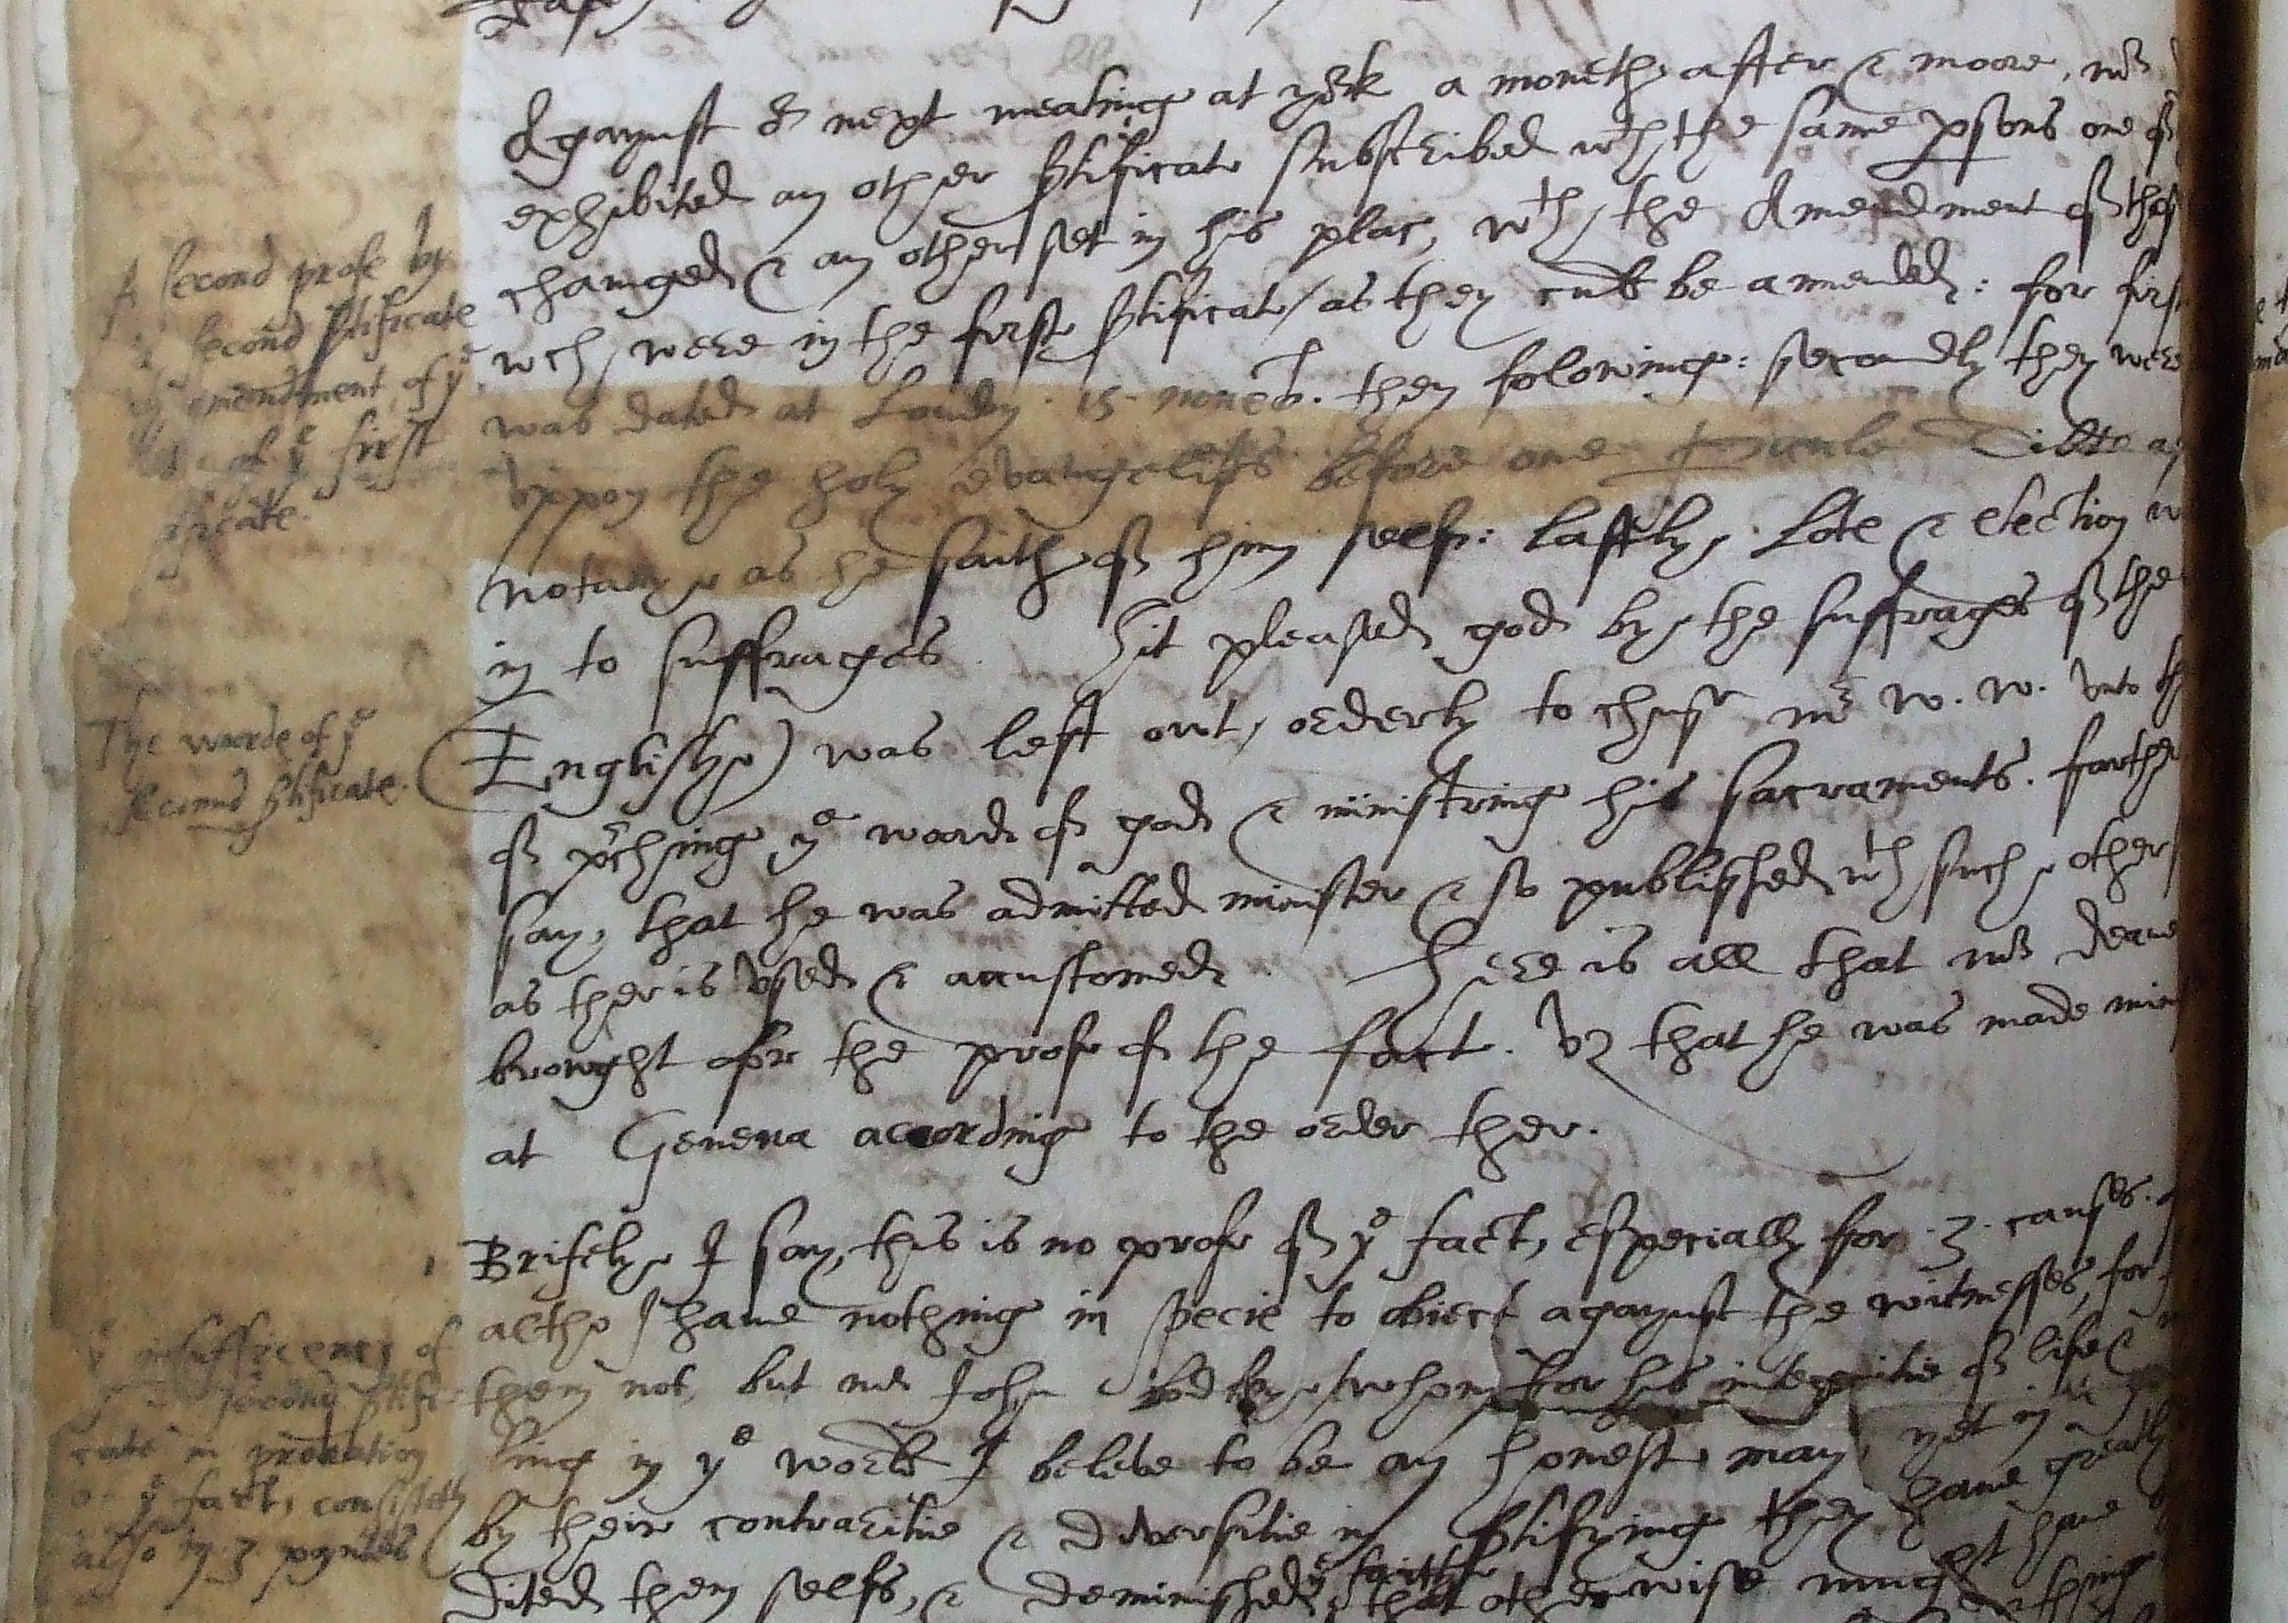 Agaynst ye next meatinge at york a moneth after & moore, mr
exhibited an other certificate subscribed wth the same psons one of
chainged & an other set in his plac, wth the Amendment of thos
wch were in the first certificate / as they culd be amended: for first
was dated at London 15 moneth then folowinge: secondly they were
uppon the holy evangelists before one Tilte a
notarye as he saith of him self: lastly, Lote & election
in to suffrages. Hit pleased god by the suffrages of the
(Englishe) was left owt, orderly to chuse mr w. w. unto th
of prchinge ye word of god & ministringe his sacraments. farther
say, that he was admitted minister & so published wth such other
as ther is used & accustomed Here is all that mr deane
browght for the profe of the fact. vz that he was made min
at Geneva accordinge to the order ther.
Brifelye I say, this is no profe of ye fact, especially for .3. causes.
altho I have nothing in specie to obiect agaynst the witnesses, for
them not, but mr John whom for his integritie of life &
ling in ye world I beleve to be an honest man, yet in
by their contraritie & diversitie in certifyinge they have greatly
dited them selfs, & deminished ye faith that otherwise might have
A second profe by
a second certificate
amendment of ye
of ye first
certificate.
The words of ye
second certificate.
ye insufficiency of
second certifi-
cate in probation
of ye fact, consisteth
also in 3 pointes